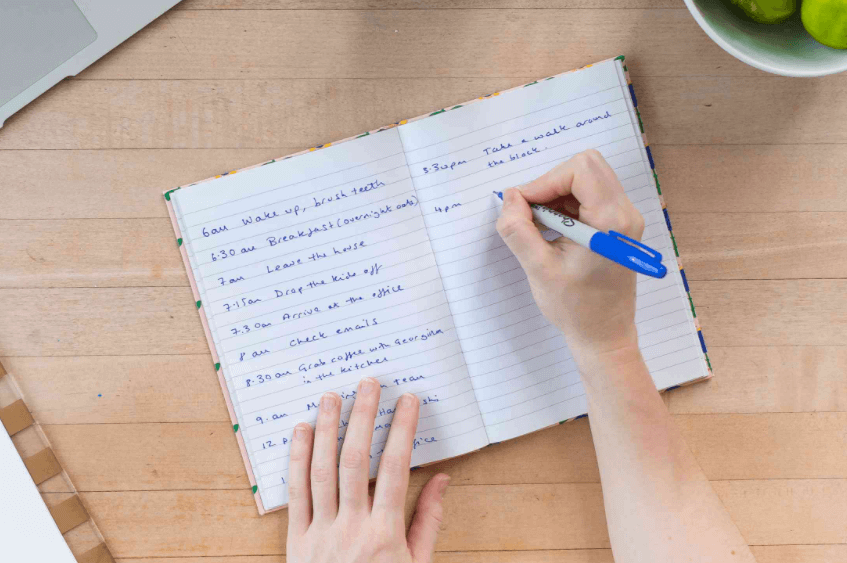 6am Wake up, brush teeth
6.30 am Breakfast (overnight oats)
7am Leave the house
7.15am Drop the kids off
7.30am Arrive at the office
8 am check emails
8.30 am Grab coffee with Georgina
in the kitchen
9. am team
12
office
3.30pm Take a walk around
the block.
4pm